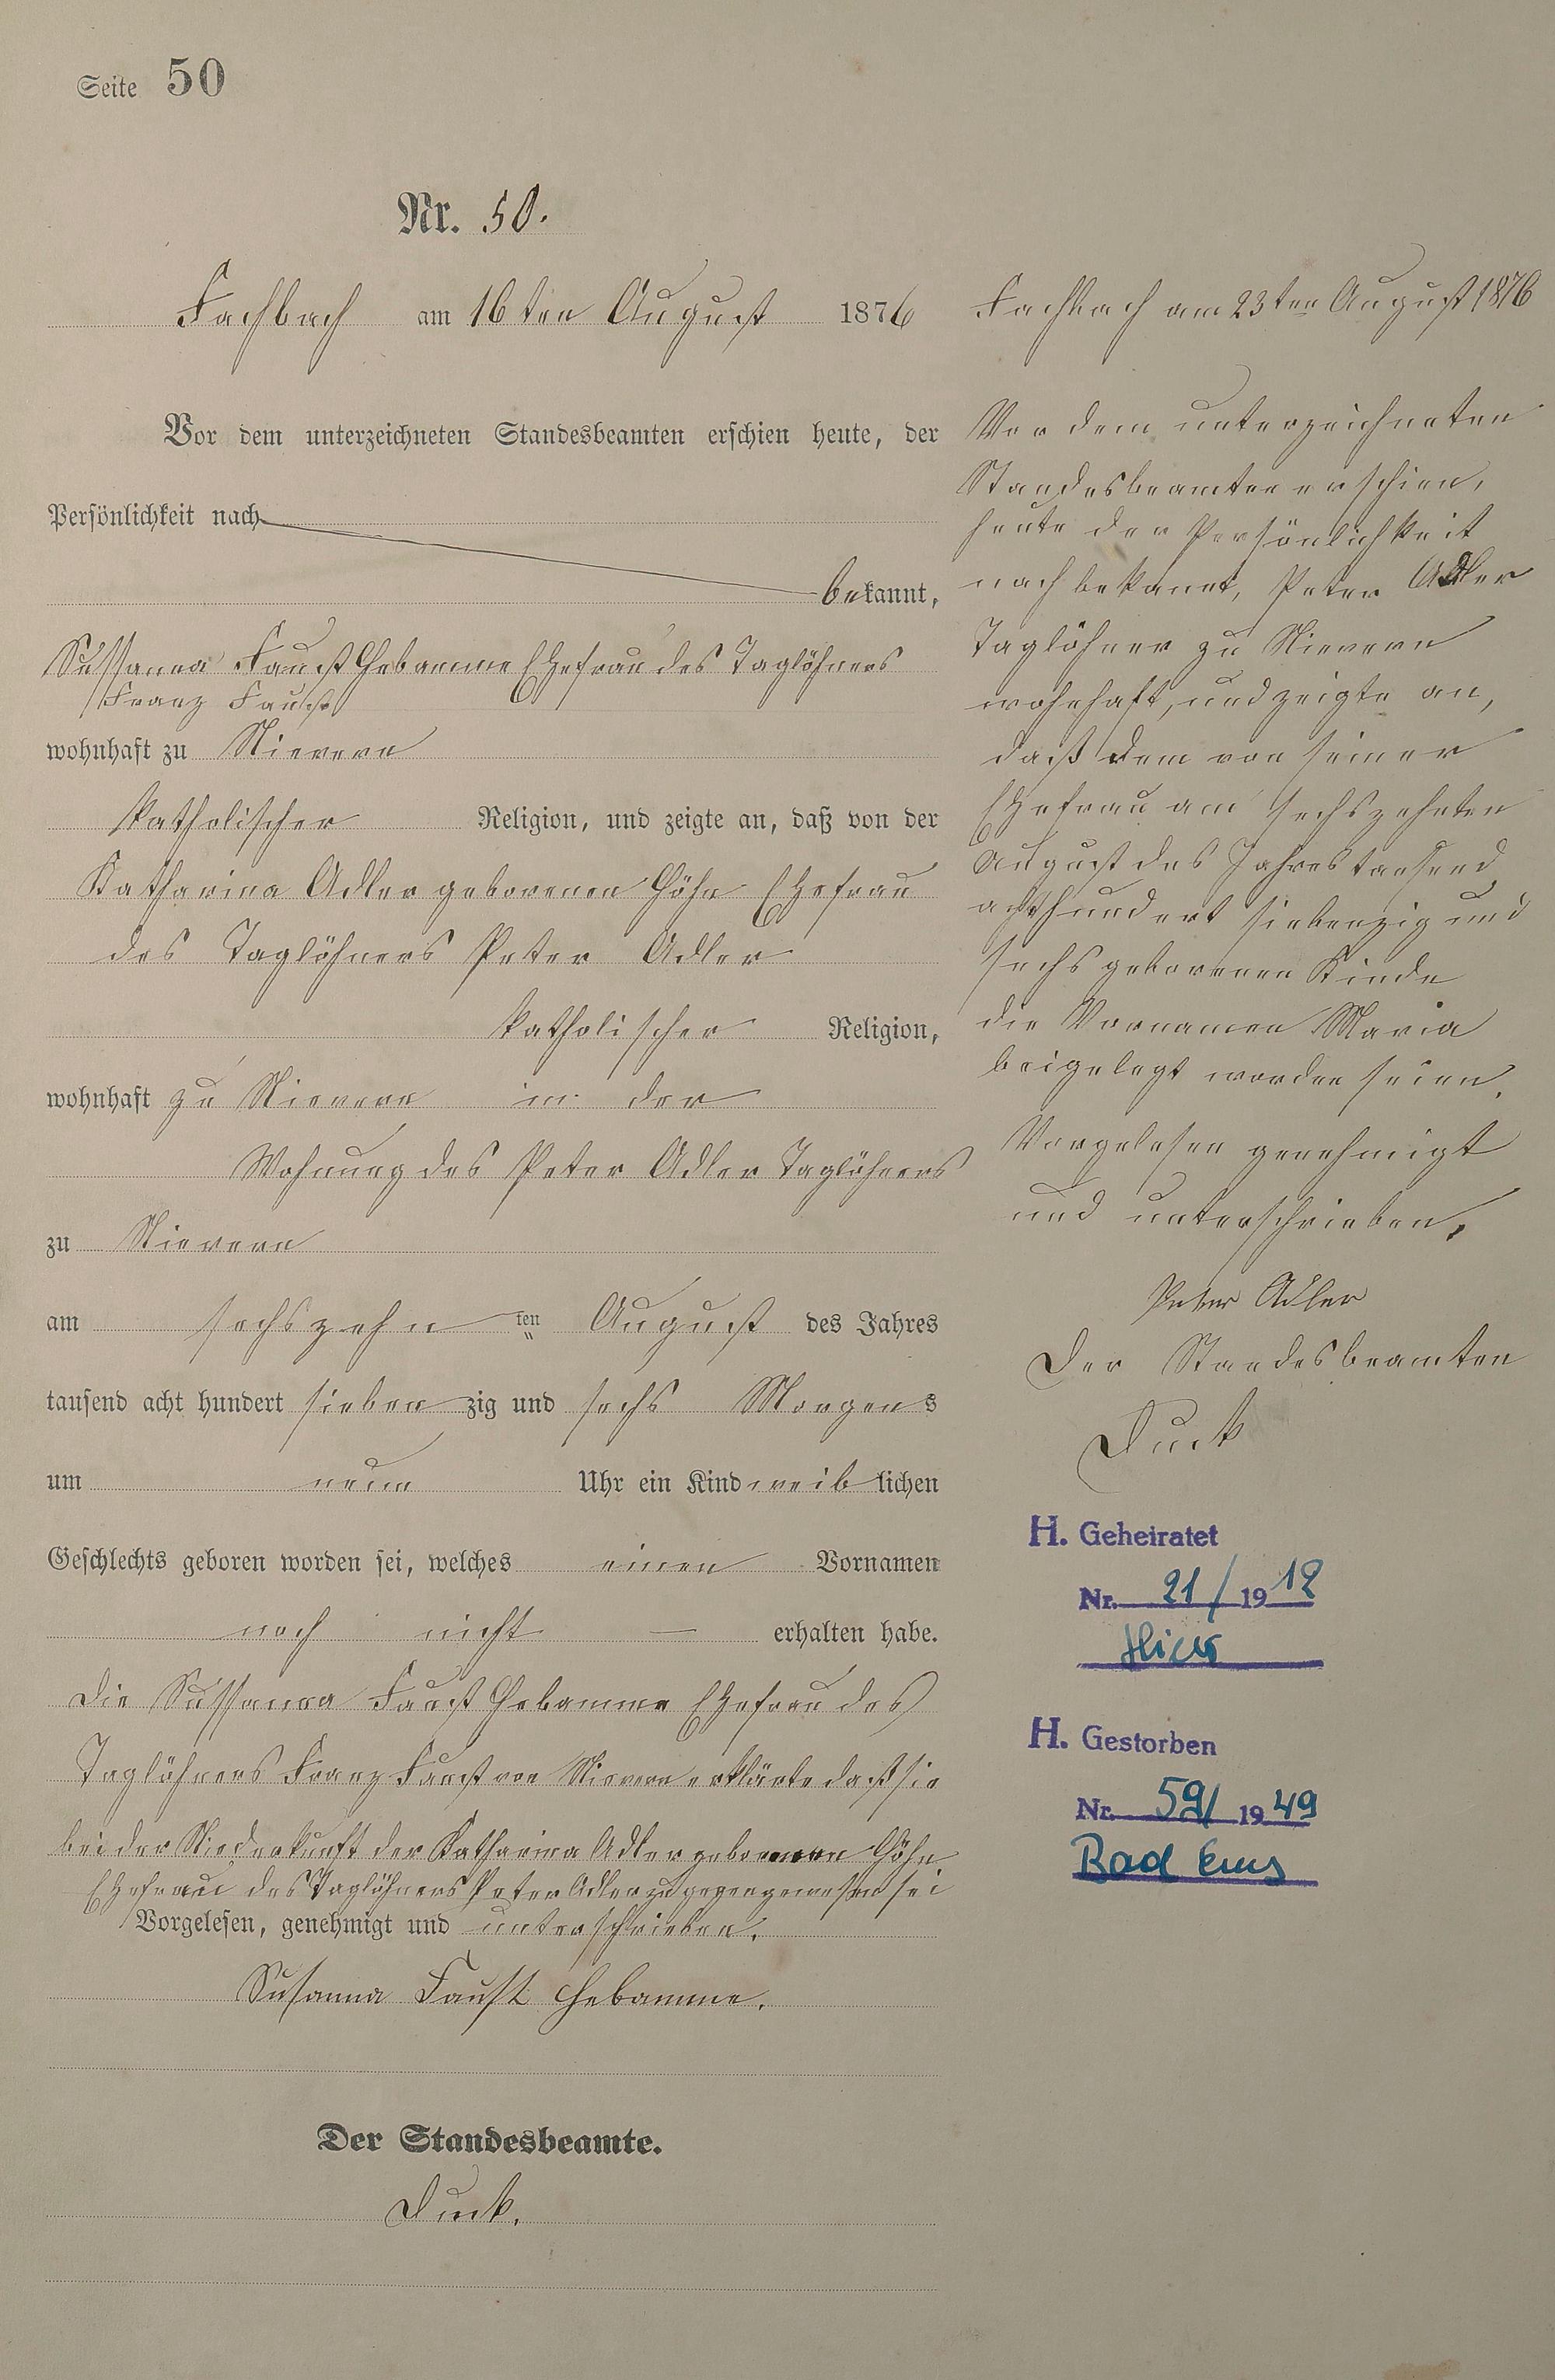 Seite 50
Nr. 50.
Fachbach am 16ten August 1876
Vor dem unterzeichneten Standesbeamten erschien heute, der
Persönlichkeit nach
bekannt,
Sussanna Faust Hebamme Ehefrau des Taglöhners
Franz Faust
wohnhaft zu Nievern
katholischer Religion, und zeigte an, daß von der
Katharina Adler geborenen Höhn Ehefrau
des Taglöhners Peter Adler
katholischer Religion,
wohnhaft zu Nievern in der
Wohnung des Peter Adler Taglöhners
zu Nievern
am sechszehn ten August des Jahres
tausend acht hundert sieben zig und sechs Morgens
um neun Uhr ein Kind weib lichen
Geschlechts geboren worden sei, welches einen Vornamen
noch nicht — erhalten habe.
Die Sussanna Faust Hebamme Ehefrau des
Taglöhners Franz Faust von Nievern erklärte daß sie
bei der Niederkunft der Katharina Adler geborenen Höhn
Ehefrau des Taglöhners Peter Adler zugegen gewesen sei
Vorgelesen, genehmigt und unterschrieben.
Susanna Faust Hebamme.
Der Standesbeamte.
Duck.
Fachbach am 23ten August 1876
Vor dem unterzeichneten
Standesbeamten erschien,
heute der Persönlichkeit
nach bekannt, Peter Adler
Taglöhner zu Nievern
wohnhaft, und zeigte an,
daß dem von seiner
Ehefrau am sechszehnten
August des Jahres tausend
achthundert siebenzig und
sechs geborenen Kinde
die Vornamen Maria
beigelegt worden seien.
Vorgelesen genehmigt
und unterschrieben.
Peter Adler
Der Standesbeamten
Duck
H. Geheiratet
Nr. 21/1912
Hier
H. Gestorben
Nr. 59/1949
Bad Ems